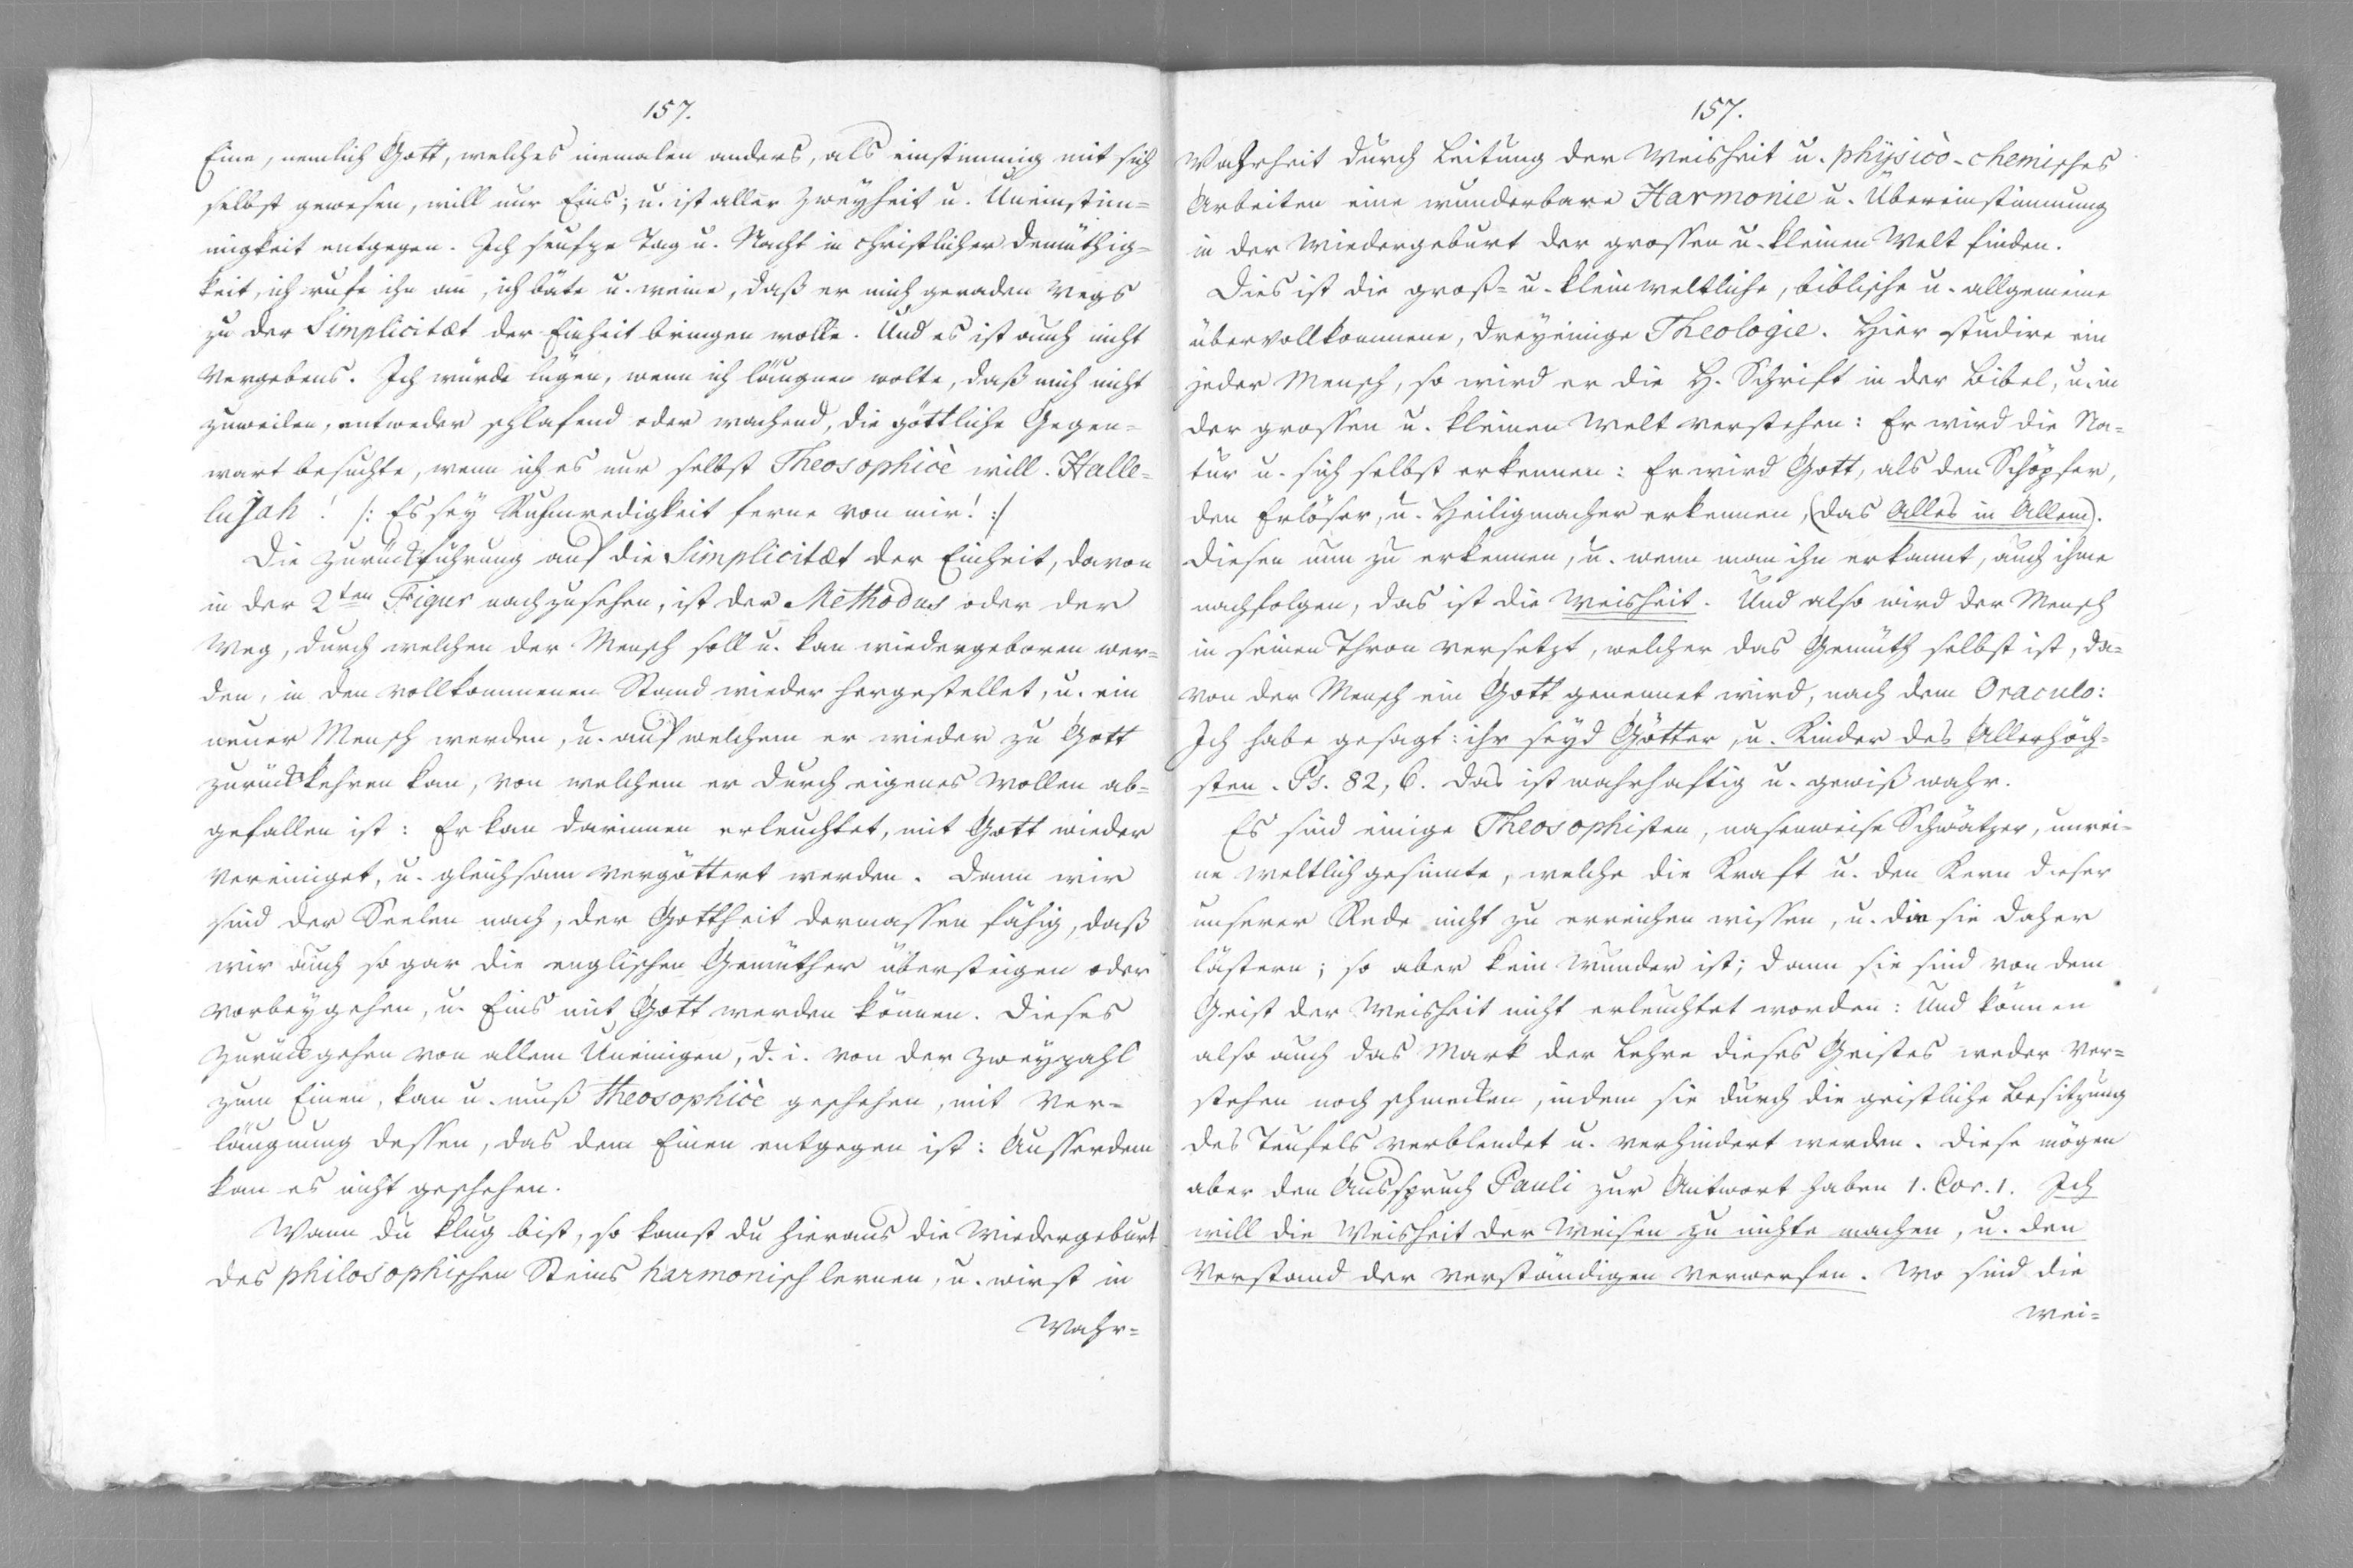 157.
Eine, nemlich Gott, welches niemalen anders, als einstimmig mit sich
selbst gewesen, will nur Eins; u. ist aller Zweyheit u. Uneinstim=
migkeit entgegen. Ich seufze Tag u. Nacht in christlicher Demüthig=
keit, ich rufe ihn an, ich bäte u. weine, daß er mich geraden Wegs
zu der Simplicitæt der Einheit bringen wolle. Und es ist auch nicht
vergebens. Ich würde lügen, wenn ich läugnen wolte, daß mich nicht
zuweilen, entweder schlafend oder wachend, die göttliche Gegen=
wart besuchte, wenn ich es nur selbst Theosophicè will. Halle=
lujah! /: Es sey Ruhmredigkeit ferne von mir! :/
Die Zurückführung auf die Simplicitæt der Einheit, davon
in der 2ten Figur nachzusehen, ist der Methodus oder der
Weg, durch welchen der Mensch soll u. kan wiedergeboren wer=
den, in den vollkommenen Stand wieder hergestellet, u. ein
neuer Mensch werden, u. auf welchem er wieder zu Gott
zurückkehren kan, von welchem er durch eigenes Wollen ab=
gefallen ist: Er kan darinnen erleuchtet, mit Gott wieder
vereiniget, u. gleichsam vergöttert werden. Denn wir
sind der Seelen nach, der Gottheit dermassen fähig, daß
wir auch so gar die englischen Gemüther übersteigen oder
vorbeygehen, u. Eins mit Gott werden können. Dieses
Zurückgehen von allem Uneinigen, d. i. von der Zweyzahl
zum Einen, kan u. muß theosophicè geschehen, mit Ver=
läugnung dessen, das dem Einen entgegen ist: Ausserdem
kan es nicht geschehen.
Wann du klug bist, so kanst du hieraus die Wiedergeburt
des philosophischen Steins harmonisch lernen, u. wirst in
Wahr=
157.
Wahrheit durch Leitung der Weisheit u. physicò-chemisches
Arbeiten eine wunderbare Harmonie u. Übereinstimmung
in der Wiedergeburt der grossen u. kleinen Welt finden.
Dies ist die groß= u. kleinweltliche, biblische u. allgemeine
übervollkommene, dreyeinige Theologie. Hier studire ein
jeder Mensch, so wird er die H. Schrift in der Bibel, u. in
der grossen u. kleinen Welt verstehen: Er wird die Na=
tur u. sich selbst erkennen: Er wird Gott, als den Schöpfer,
den Erlöser, u. Heiligmacher erkennen, (das Alles in Allem).
Diesen nun zu erkennen, u. wenn man ihn erkannt, auch ihme
nachfolgen, das ist die Weisheit. Und also wird der Mensch
in seinen Thron versetzt, welcher das Gemüth selbst ist, da=
von der Mensch ein Gott genennet wird, nach dem Oraculo:
Ich habe gesagt: ihr seyd Götter, u. Kinder des Allerhöch=
sten. Ps. 82, 6. Das ist wahrhaftig u. gewiß wahr.
Es sind einige Theosophisten, nasenweise Schwätzer, unrei=
ne weltlichgesinnte, welche die Kraft u. den Kern dieser
unserer Rede nicht zu erreichen wissen, u. die sie daher
lästern; so aber kein Wunder ist; dann sie sind von dem
Geist der Weisheit nicht erleuchtet worden: Und können
also auch das Mark der Lehre dieses Geistes weder ver=
stehen noch schmecken, indem sie durch die geistliche Besitzung
des Teufels verblendet u. verhindert werden. Diese mögen
aber den Ausspruch Pauli zur Antwort haben 1. Cor. 1. Ich
will die Weisheit der Weisen zu nichte machen, u. den
Verstand der Verständigen verwerfen. Wo sind die
Wei=